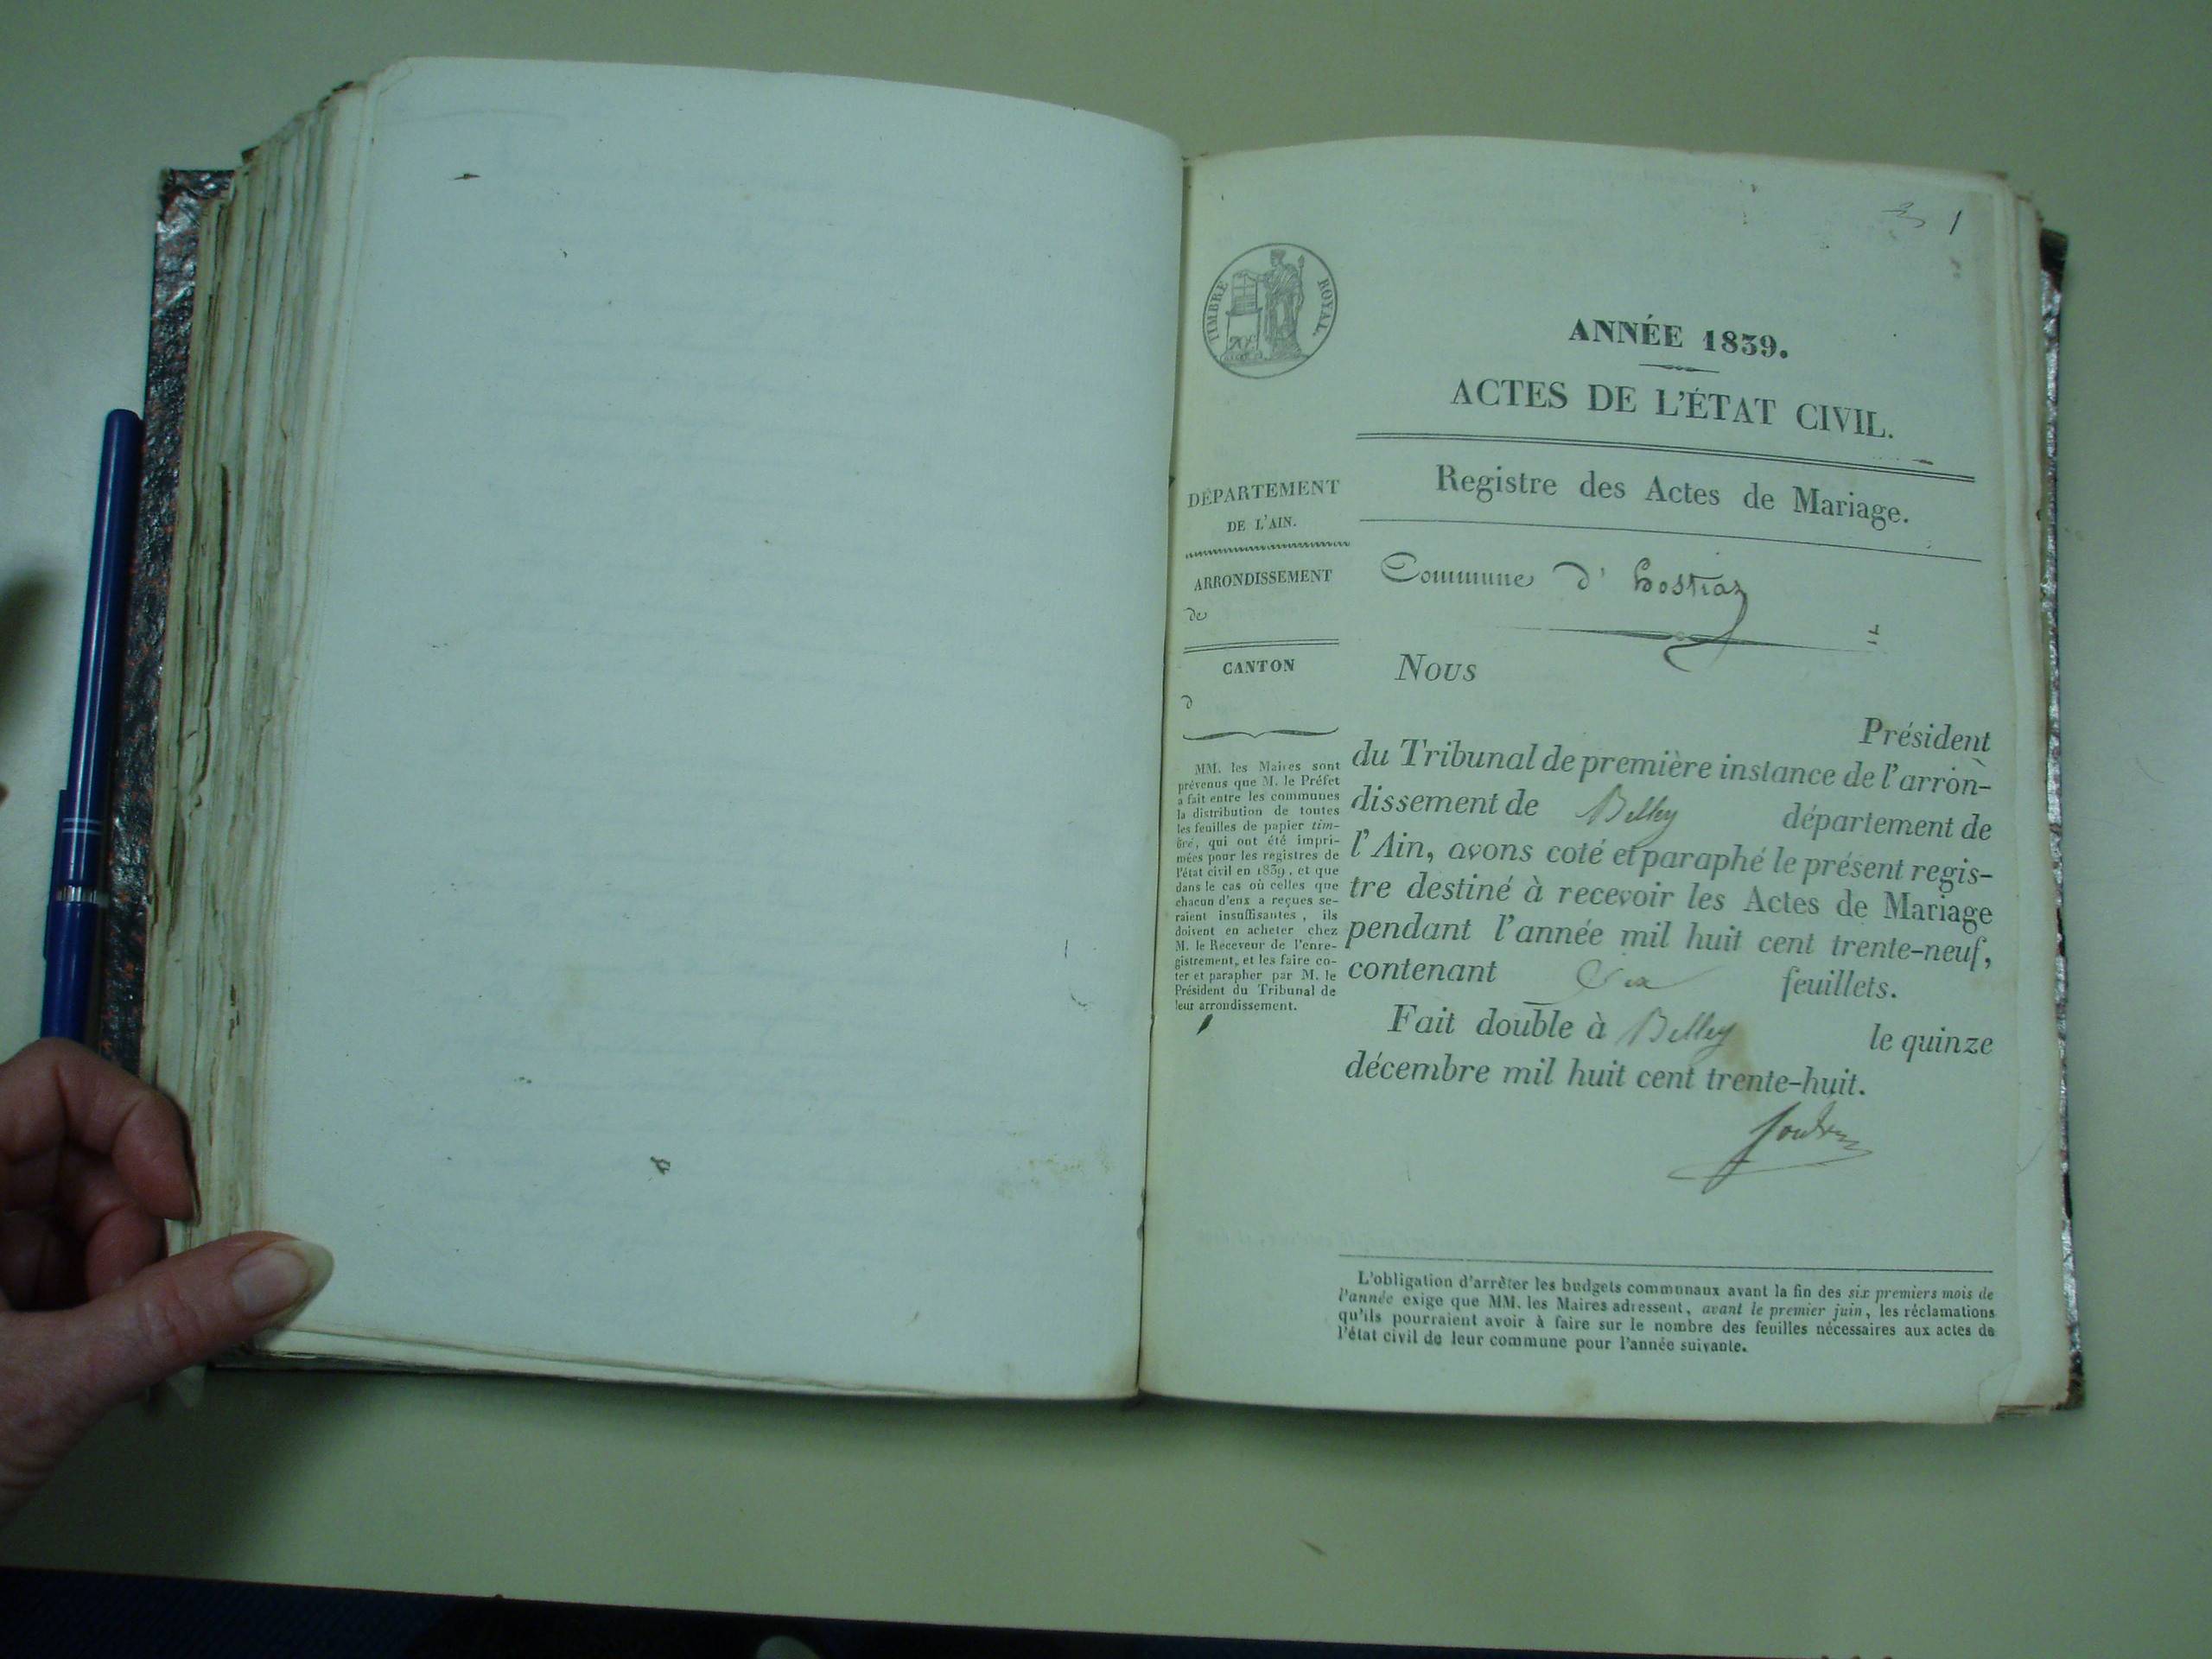 1
TIMBRE ROYAL.
ANNÉE 1839.
ACTES DE L'ÉTAT CIVIL.
Registre des Actes de Mariage.
DÉPARTEMENT
DE L'AIN.
ARRONDISSEMENT
de
CANTON
d
MM. les Maires sont
prévenus que M. le Préfet
a fait entre les communes
la distribution de toutes
les feuilles de papier tim-
bré, qui ont été impri-
mées pour les registres de
l'état civil en 1839, et que
dans le cas où celles que
chacun d'eux a reçues se-
raient insuffisantes, ils
doivent en acheter chez
M. le Receveur de l'enre-
gistrement, et les faire co-
ter et parapher par M. le
Président du Tribunal de
leur arrondissement.
Commune d'hostiaz
Nous
Président
du Tribunal de première instance de l'arron-
dissement de Belley département de
l'Ain, avons coté et paraphé le présent regis-
tre destiné à recevoir les Actes de Mariage
pendant l'année mil huit cent trente-neuf,
contenant Six feuillets.
Fait double à Belley le quinze
décembre mil huit cent trente-huit.
L'obligation d'arrêter les budgets communaux avant la fin des six premiers mois de
l'année exige que MM. les Maires adressent, avant le premier juin, les réclamations
qu'ils pourraient avoir à faire sur le nombre des feuilles nécessaires aux actes de
l'état civil de leur commune pour l'année suivante.